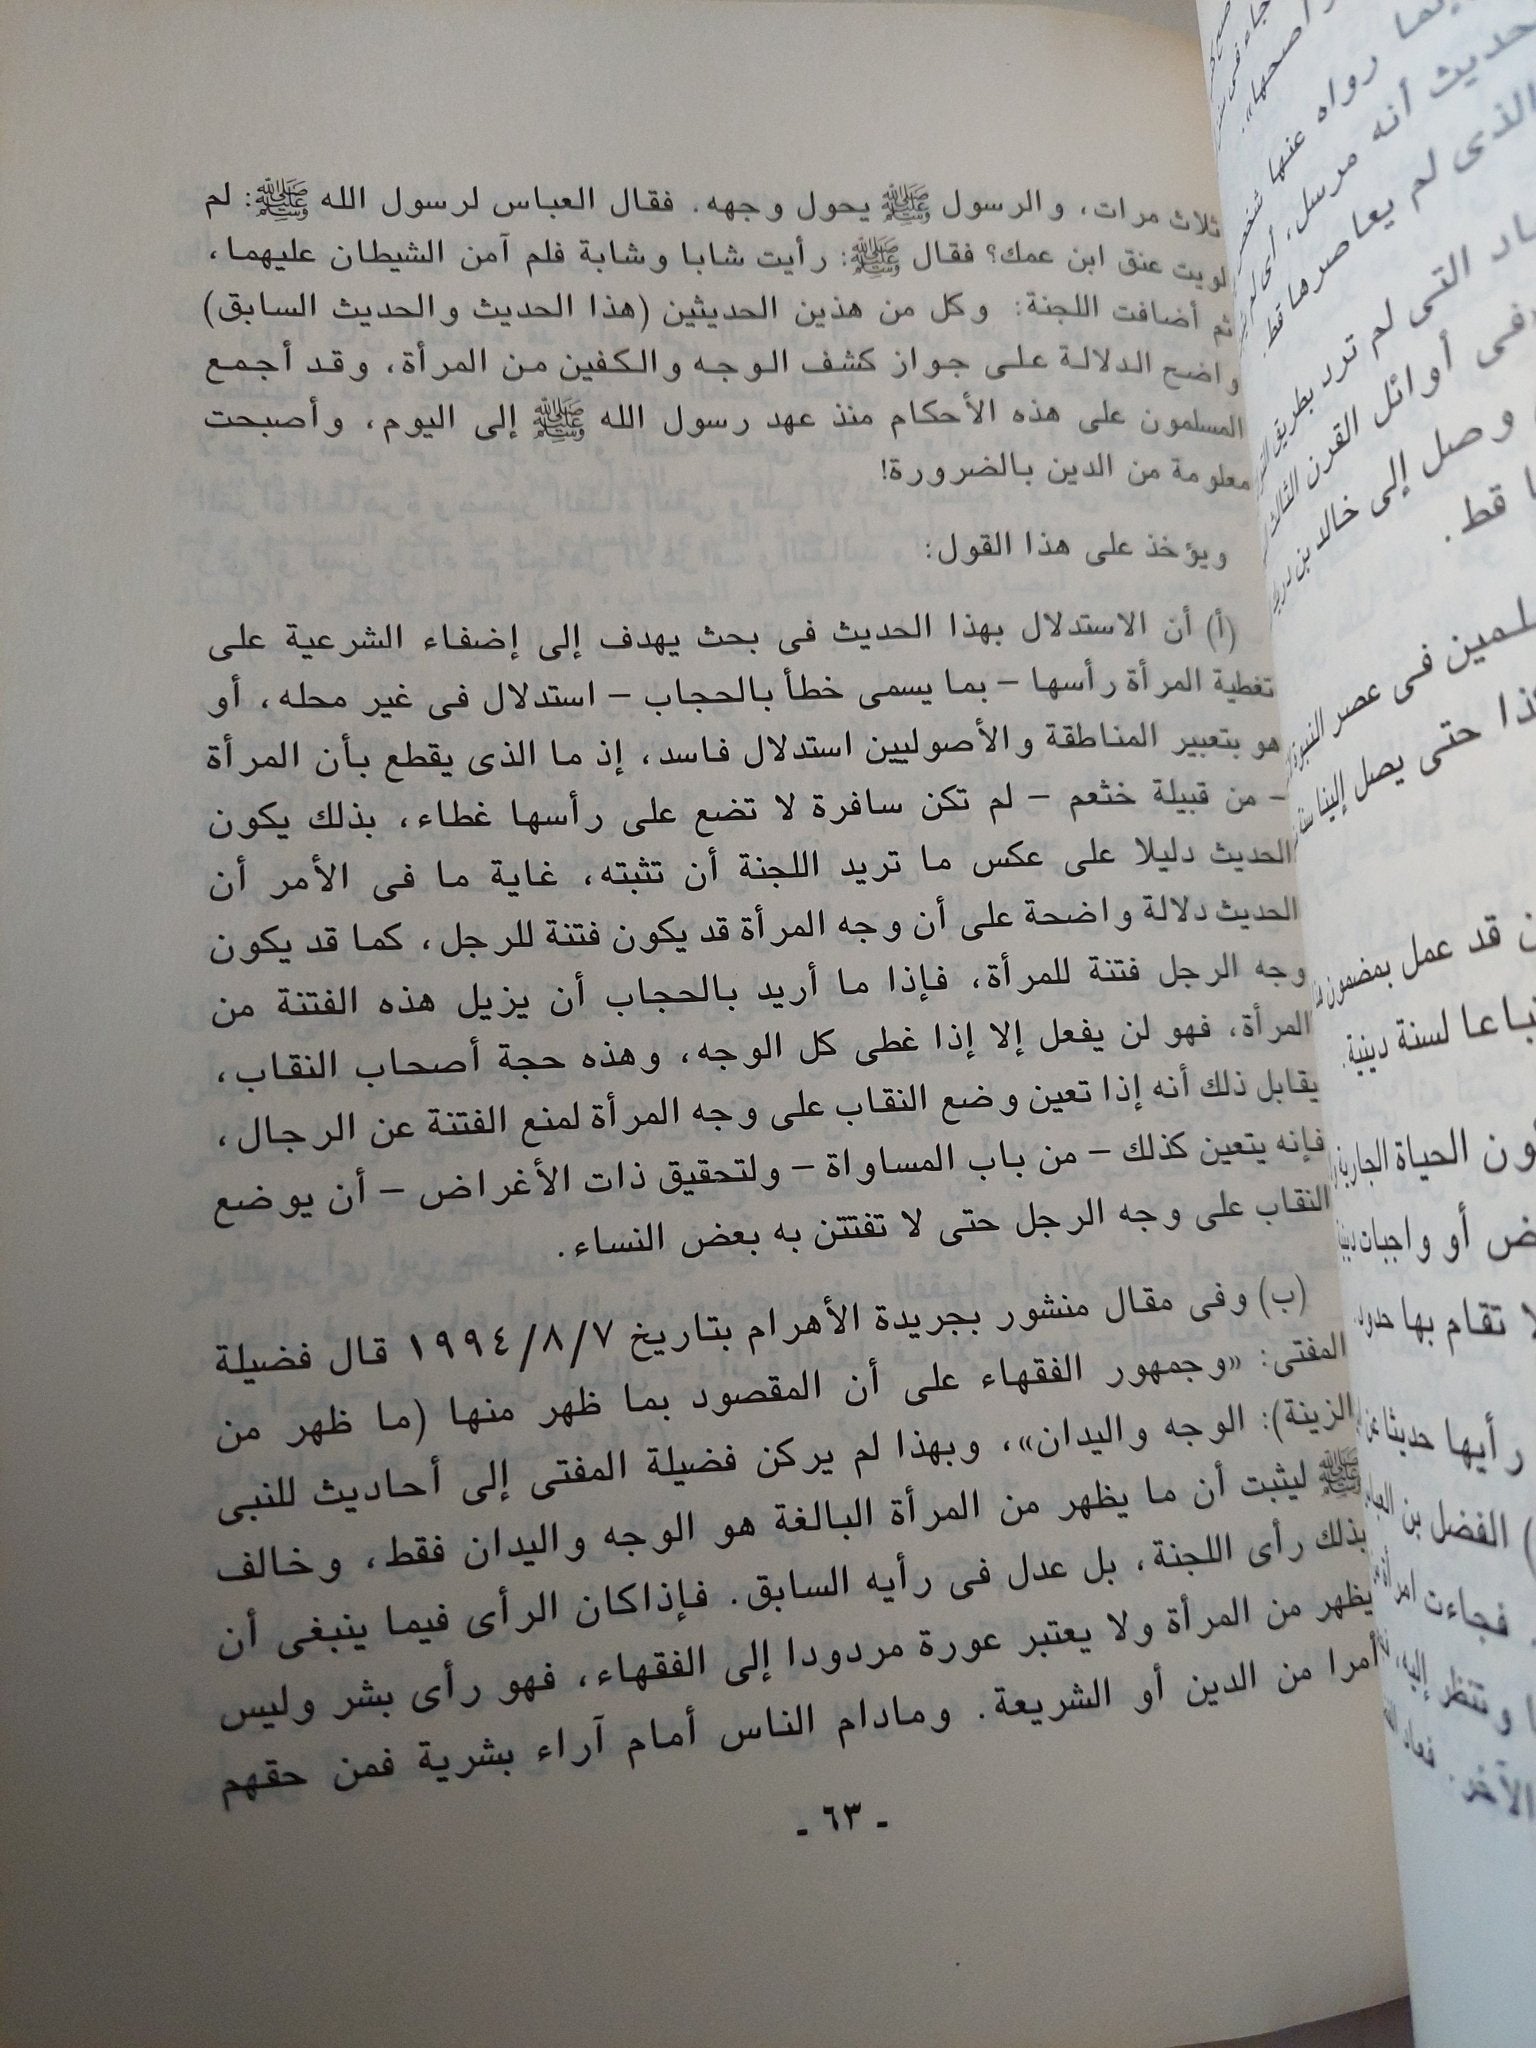 ثلاث مرات، والرسول ﷺ يحول وجهه. فقال العباس لرسول الله ﷺ: لم
لويت عنق ابن عمك؟ فقال ﷺ: رأيت شابا وشابة فلم آمن الشيطان عليهما،
ثم أضافت اللجنة: وكل من هذين الحديثين (هذا الحديث والحديث السابق)
واضح الدلالة على جواز كشف الوجه والكفين من المرأة، وقد أجمع
المسلمون على هذه الأحكام منذ عهد رسول الله ﷺ إلى اليوم، وأصبحت
معلومة من الدين بالضرورة!
ويؤخذ على هذا القول:
(أ) أن الاستدلال بهذا الحديث فى بحث يهدف إلى إضفاء الشرعية على
تغطية المرأة رأسها – بما يسمى خطأ بالحجاب – استدلال فى غير محله، أو
هو بتعبير المناطقة والأصوليين استدلال فاسد، إذ ما الذى يقطع بأن المرأة
– من قبيلة خثعم – لم تكن سافرة لا تضع على رأسها غطاء، بذلك يكون
الحديث دليلا على عكس ما تريد اللجنة أن تثبته، غاية ما فى الأمر أن
الحديث دلالة واضحة على أن وجه المرأة قد يكون فتنة للرجل، كما قد يكون
وجه الرجل فتنة للمرأة، فإذا ما أريد بالحجاب أن يزيل هذه الفتنة من
المرأة، فهو لن يفعل إلا إذا غطى كل الوجه، وهذه حجة أصحاب النقاب،
يقابل ذلك أنه إذا تعين وضع النقاب على وجه المرأة لمنع الفتنة عن الرجال،
فإنه يتعين كذلك – من باب المساواة – ولتحقيق ذات الأغراض – أن يوضع
النقاب على وجه الرجل حتى لا تفتتن به بعض النساء.
(ب) وفى مقال منشور بجريدة الأهرام بتاريخ ١٩٩٤/٨/٧ قال فضيلة
المفتى: «وجمهور الفقهاء على أن المقصود بما ظهر منها (ما ظهر من
الزينة): الوجه واليدان»، وبهذا لم يركن فضيلة المفتى إلى أحاديث للنبى
ﷺ ليثبت أن ما يظهر من المرأة البالغة هو الوجه واليدان فقط، وخالف
بذلك رأى اللجنة، بل عدل فى رأيه السابق. فإذاكان الرأى فيما ينبغى أن
يظهر من المرأة ولا يعتبر عورة مردودا إلى الفقهاء، فهو رأى بشر وليس
أمرا من الدين أو الشريعة. ومادام الناس أمام آراء بشرية فمن حقهم
ـ ٦٣ ـ
رواه عنها
حديث أنه مرسل، أى لم
الذى لم يعاصرها قط.
التى لم ترد بطريق
فى أوائل القرن الثالث
وصل إلى خالد بن
قط.
فى عصر النبوة
حتى يصل إلينا
قد عمل بمضمون
لسنة دينية.
الحياة الجارية
أو واجبات
لا تقام بها حدود.
رأيها حديثا عن
الفضل بن
فجاءت امرأة
وتنظر إليه،
الآخر.